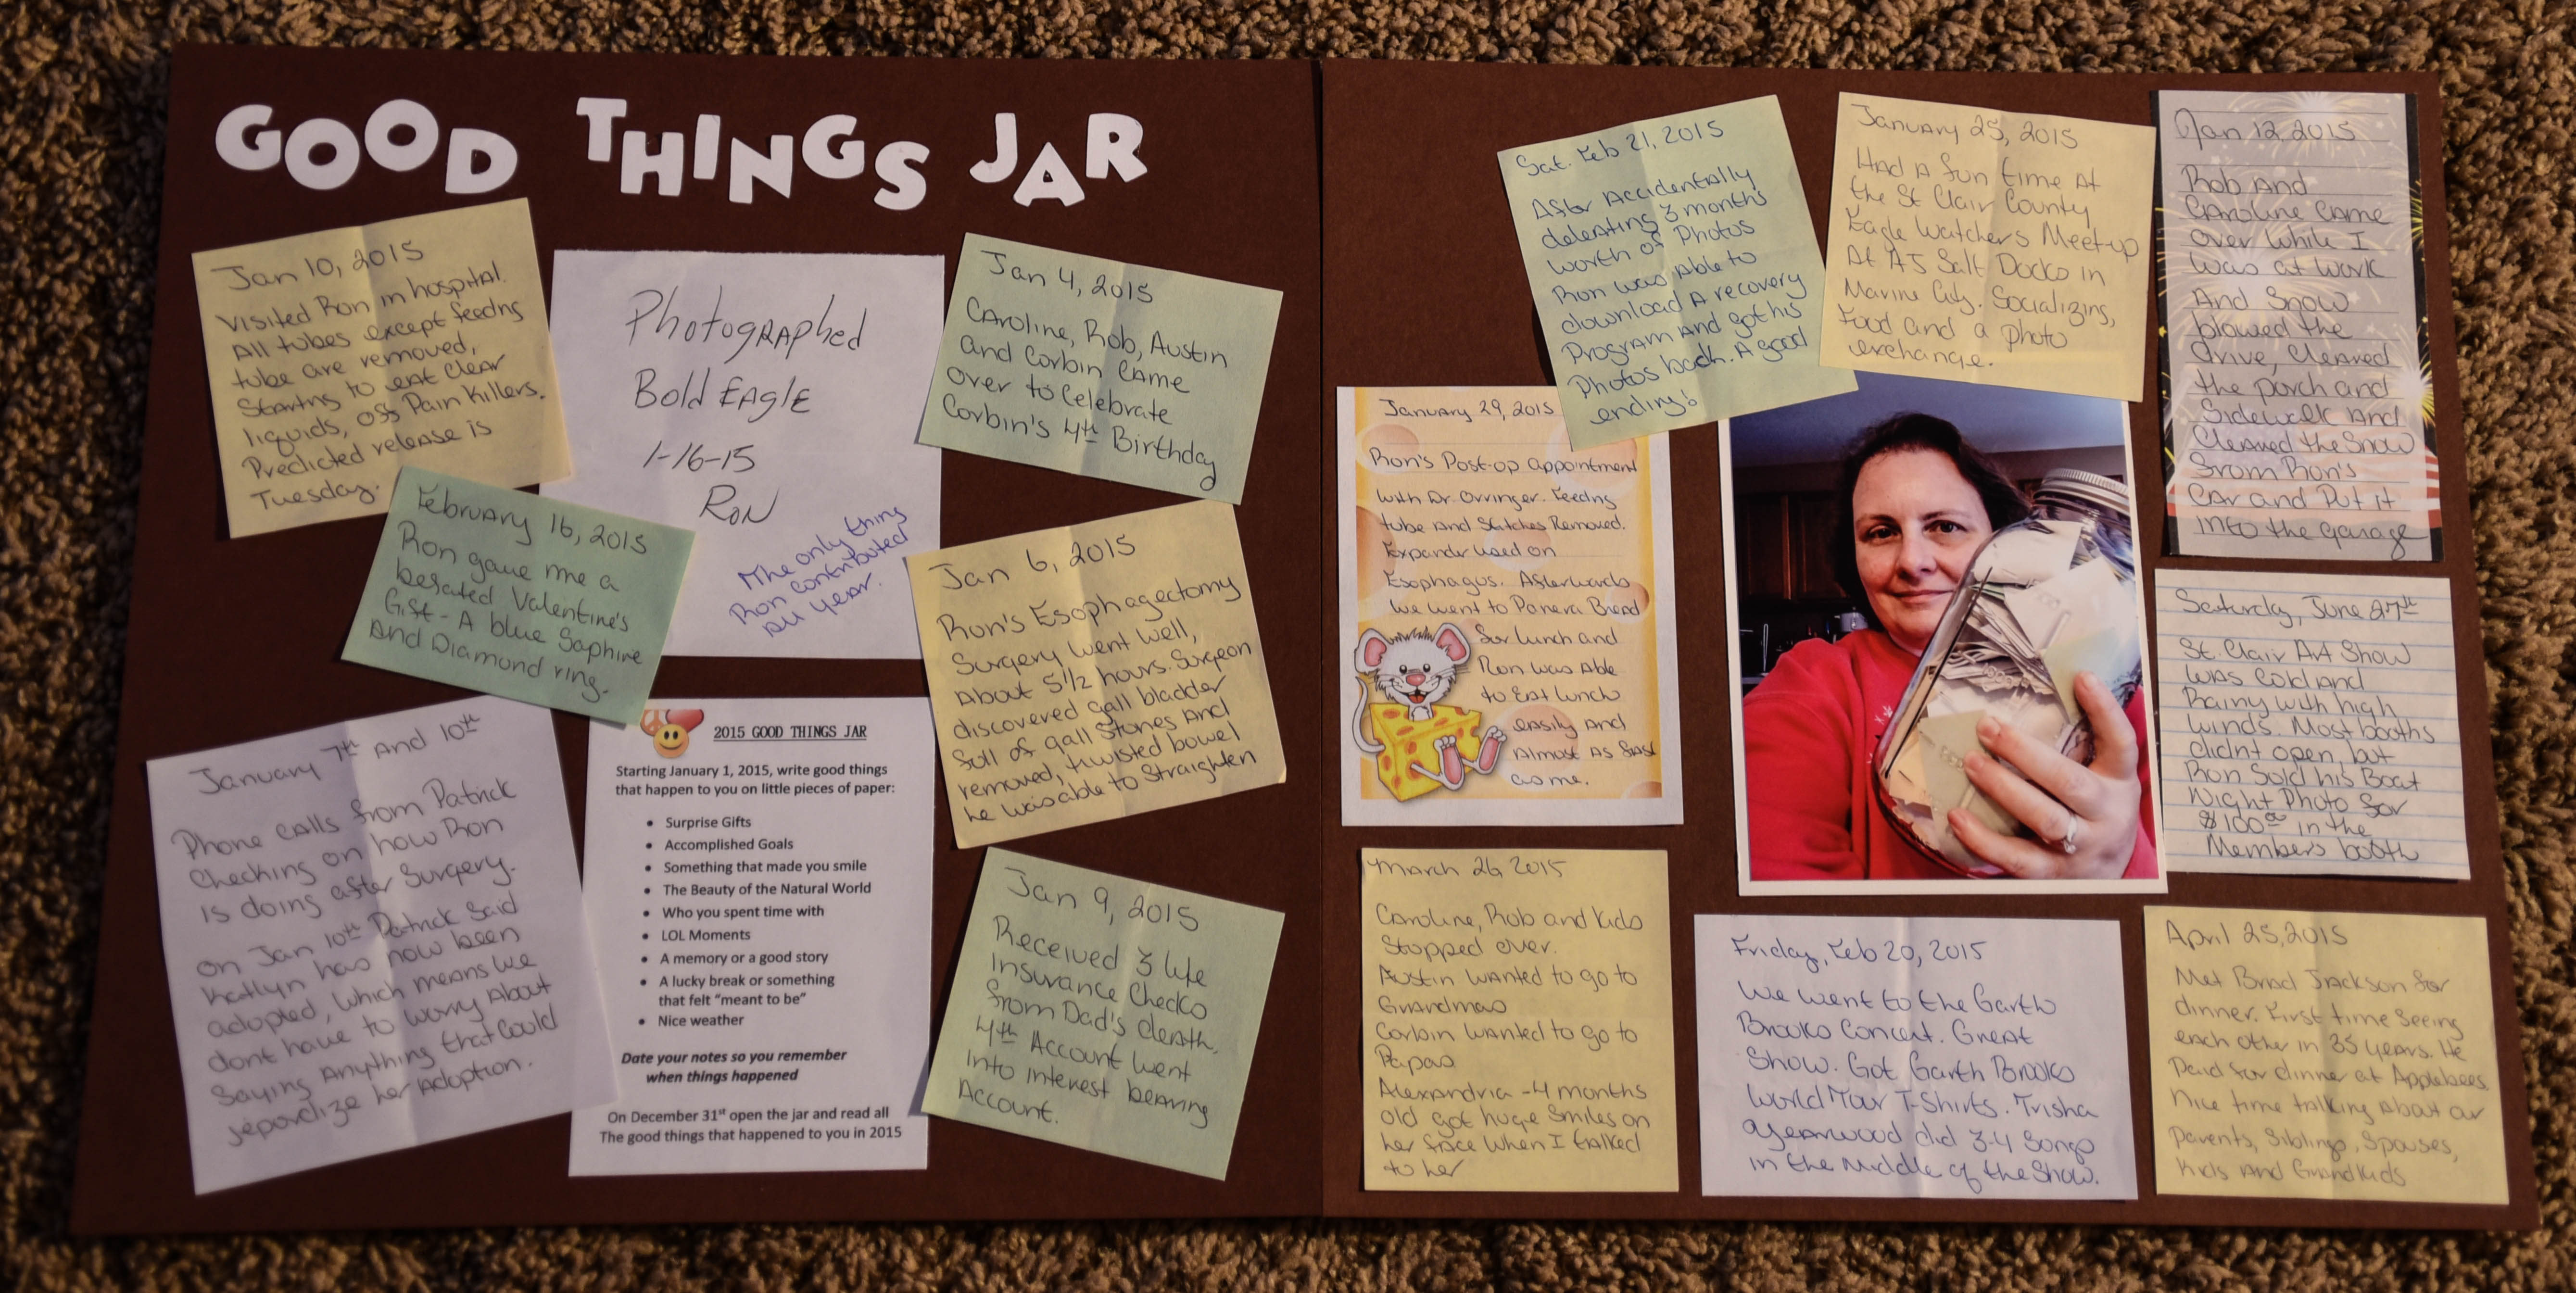 GOOD THINGS JAR
Jan 10, 2015
Visited Ron in hospital.
All tubes except feedng
tube are removed,
Startng to eat clear
liquids, off Pain Killers.
Predicted release is
Tuesday.
Photographed
Bold EAglE
1-16-15
RoN
The only thing
Ron contributed
all year.
Jan 4, 2015
Caroline, Rob, Austin
and Corbin came
over to celebrate
Corbin's 4th Birthday
February 16, 2015
Ron gave me a
belated Valentine's
Gift - A blue Saphire
and Diamond ring.
Jan 6, 2015
Ron's Esophagectomy
Surgery went well,
About 5 1/2 hours. Surgeon
discovered gall bladder
full of gall stones and
removed, twisted bowel
he was able to straighten
January 7th and 10th
Phone calls from Patrick
checking on how Ron
is doing after surgery.
on Jan 10th Patrick said
Katlyn has now been
adopted, which means we
dont have to worry about
saying anything that could
jepordize her adoption.
2015 GOOD THINGS JAR
Starting January 1, 2015, write good things
that happen to you on little pieces of paper:
• Surprise Gifts
• Accomplished Goals
• Something that made you smile
• The Beauty of the Natural World
• Who you spent time with
• LOL Moments
• A memory or a good story
• A lucky break or something
that felt "meant to be"
• Nice weather
Date your notes so you remember
when things happened
On December 31st open the jar and read all
The good things that happened to you in 2015
Jan 9, 2015
Received 3 life
insurance checks
from Dad's death,
4th Account went
into interest bearing
Account.
Sat. Feb 21, 2015
After accidentally
deleating 3 months
worth of photos
Ron was able to
download a recovery
program and got his
photos back. A good
ending!
January 25, 2015
Had a fun time at
the St Clair County
Eagle Watchers Meet-up
At AJ Salt Docks in
Marine City. Socializing,
Food and a photo
exchange.
Jan 12, 2015
Rob and
Caroline came
over while I
was at work
And snow
blowed the
drive, cleared
the porch and
Sidewalk and
cleared the snow
from Ron's
car and put it
into the garage
January 29, 2015
Ron's Post-op appointment
with Dr. Orringer. Feedng
tube and stitches Removed.
Expander used on
Esophagus. Afterwards
we went to Panera Bread
for lunch and
Ron was able
to eat lunch
easily and
almost as fast
as me.
Saturday, June 27th
St. Clair Art Show
was cold and
Rainy with high
winds. Most booths
didnt open, but
Ron sold his Boat
Night Photo for
$100.00 in the
Members booth
March 26, 2015
Caroline, Rob and Kids
stopped over.
Austin wanted to go to
Grandmas
Corbin wanted to go to
Papas
Alexandria - 4 months
old got huge smiles on
her face when I talked
to her
Friday, Feb 20, 2015
We went to the Garth
Brooks Concert. Great
Show. Got Garth Brooks
World Tour T-Shirts. Trisha
Yearwood did 3-4 songs
in the middle of the show.
April 25, 2015
Met Brad Jackson for
dinner. First time seeing
each other in 35 years. He
Paid for dinner at Applebees.
Nice time talking about our
parents, siblings, spouses,
kids and Grandkids